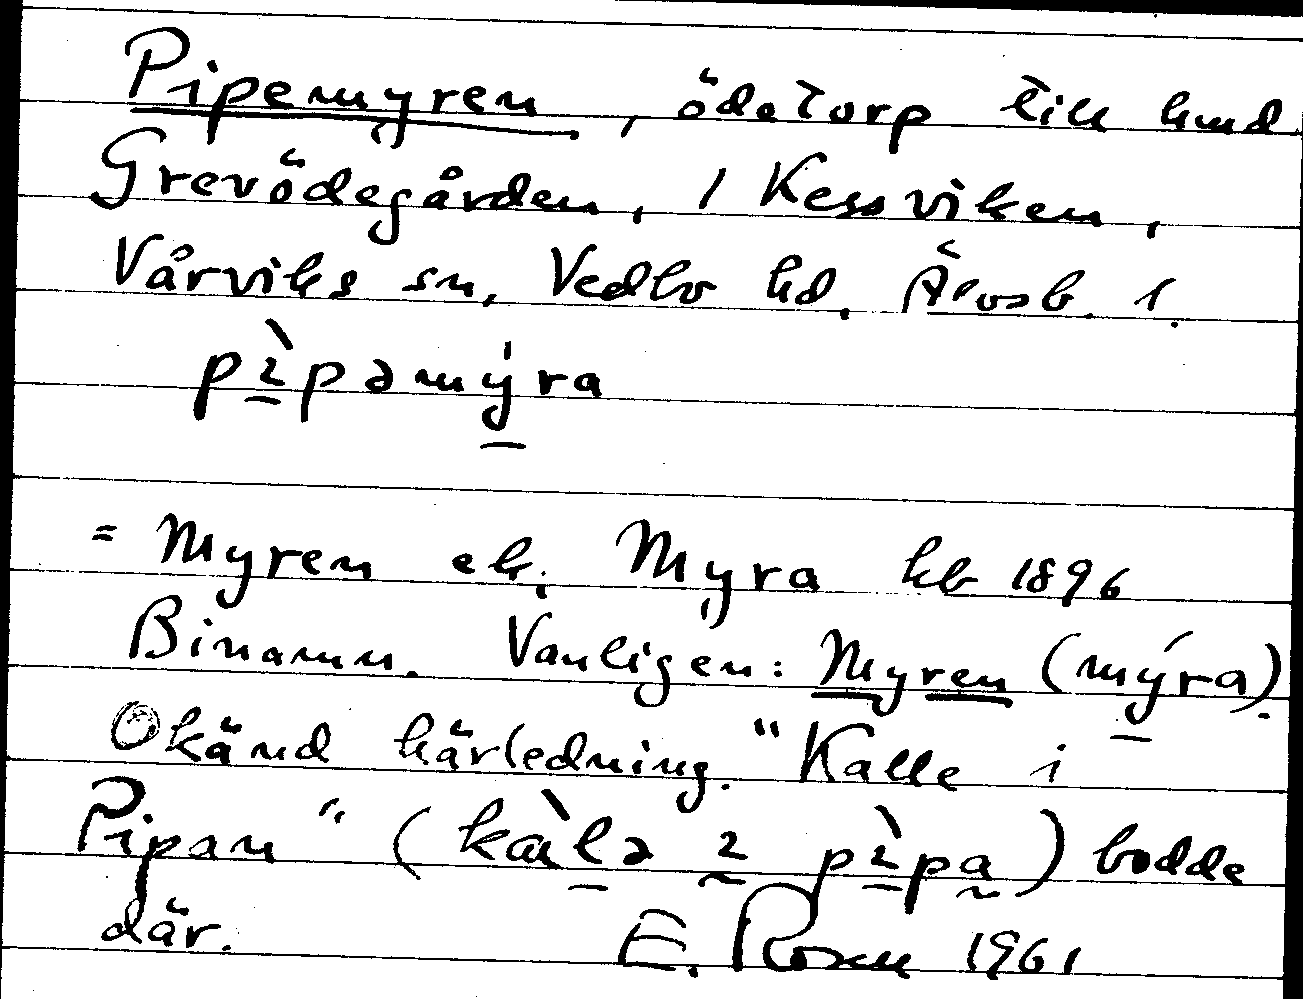 Pipemyren, ödetorp till hmd
Grevödegården, i Kessviken,
Vårviks sn, Vedbo hd. Älvsb. l.
pı̀pəmýra
= Myren ek. Myra kb 1896
Binamn. Vanligen: Myren (mýra).
Okänd härledning. "Kalle i
Pipan" (kàlə ı pı̀pa) bodde
där. E. Rosen 1961